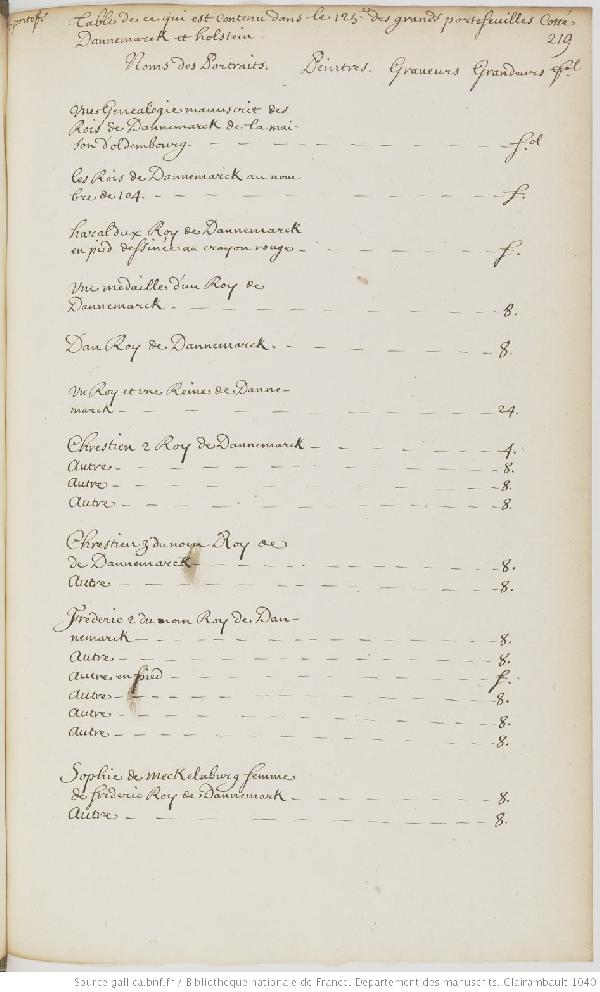 portef.
Table de ce qui est contenu dans le 125.e des grands portefeuilles Cotté
Dannemarck et holstein. 219
Noms des Portraits. Peintres. Graveurs Grandeurs
Une Genealogie manuscrit des
Rois de Dannemarck de la mai-
son d'oldembourg. f.ol
les Rois de Dannemarck au nom-
bre de 104. f.
haraldux Roy de Dannemarck
en pied dessinée au crayon rouge f.
Une medaille d'un Roy de
Dannemarck 8.
Dan Roy de Dannemarck. 8.
Un Roy et une Reine de Danne-
marck 24.
Chrestien 2 Roy de Dannemarck 4.
Autre 8.
Autre 8.
Autre 8.
Chrestien 3 du nom Roy de
de Dannemarck 8.
Autre 8.
Frederic 2 du nom Roy de Dan-
nemarck 8.
Autre 8.
Autre en pied f.
Autre 8.
Autre 8.
Autre 8.
Sophie de Meckelnburg femme
de frederic Roy de Dannemarck 8.
Autre 8.
Source gallica.bnf.fr / Bibliothèque nationale de France. Département des manuscrits. Clairambault 1040